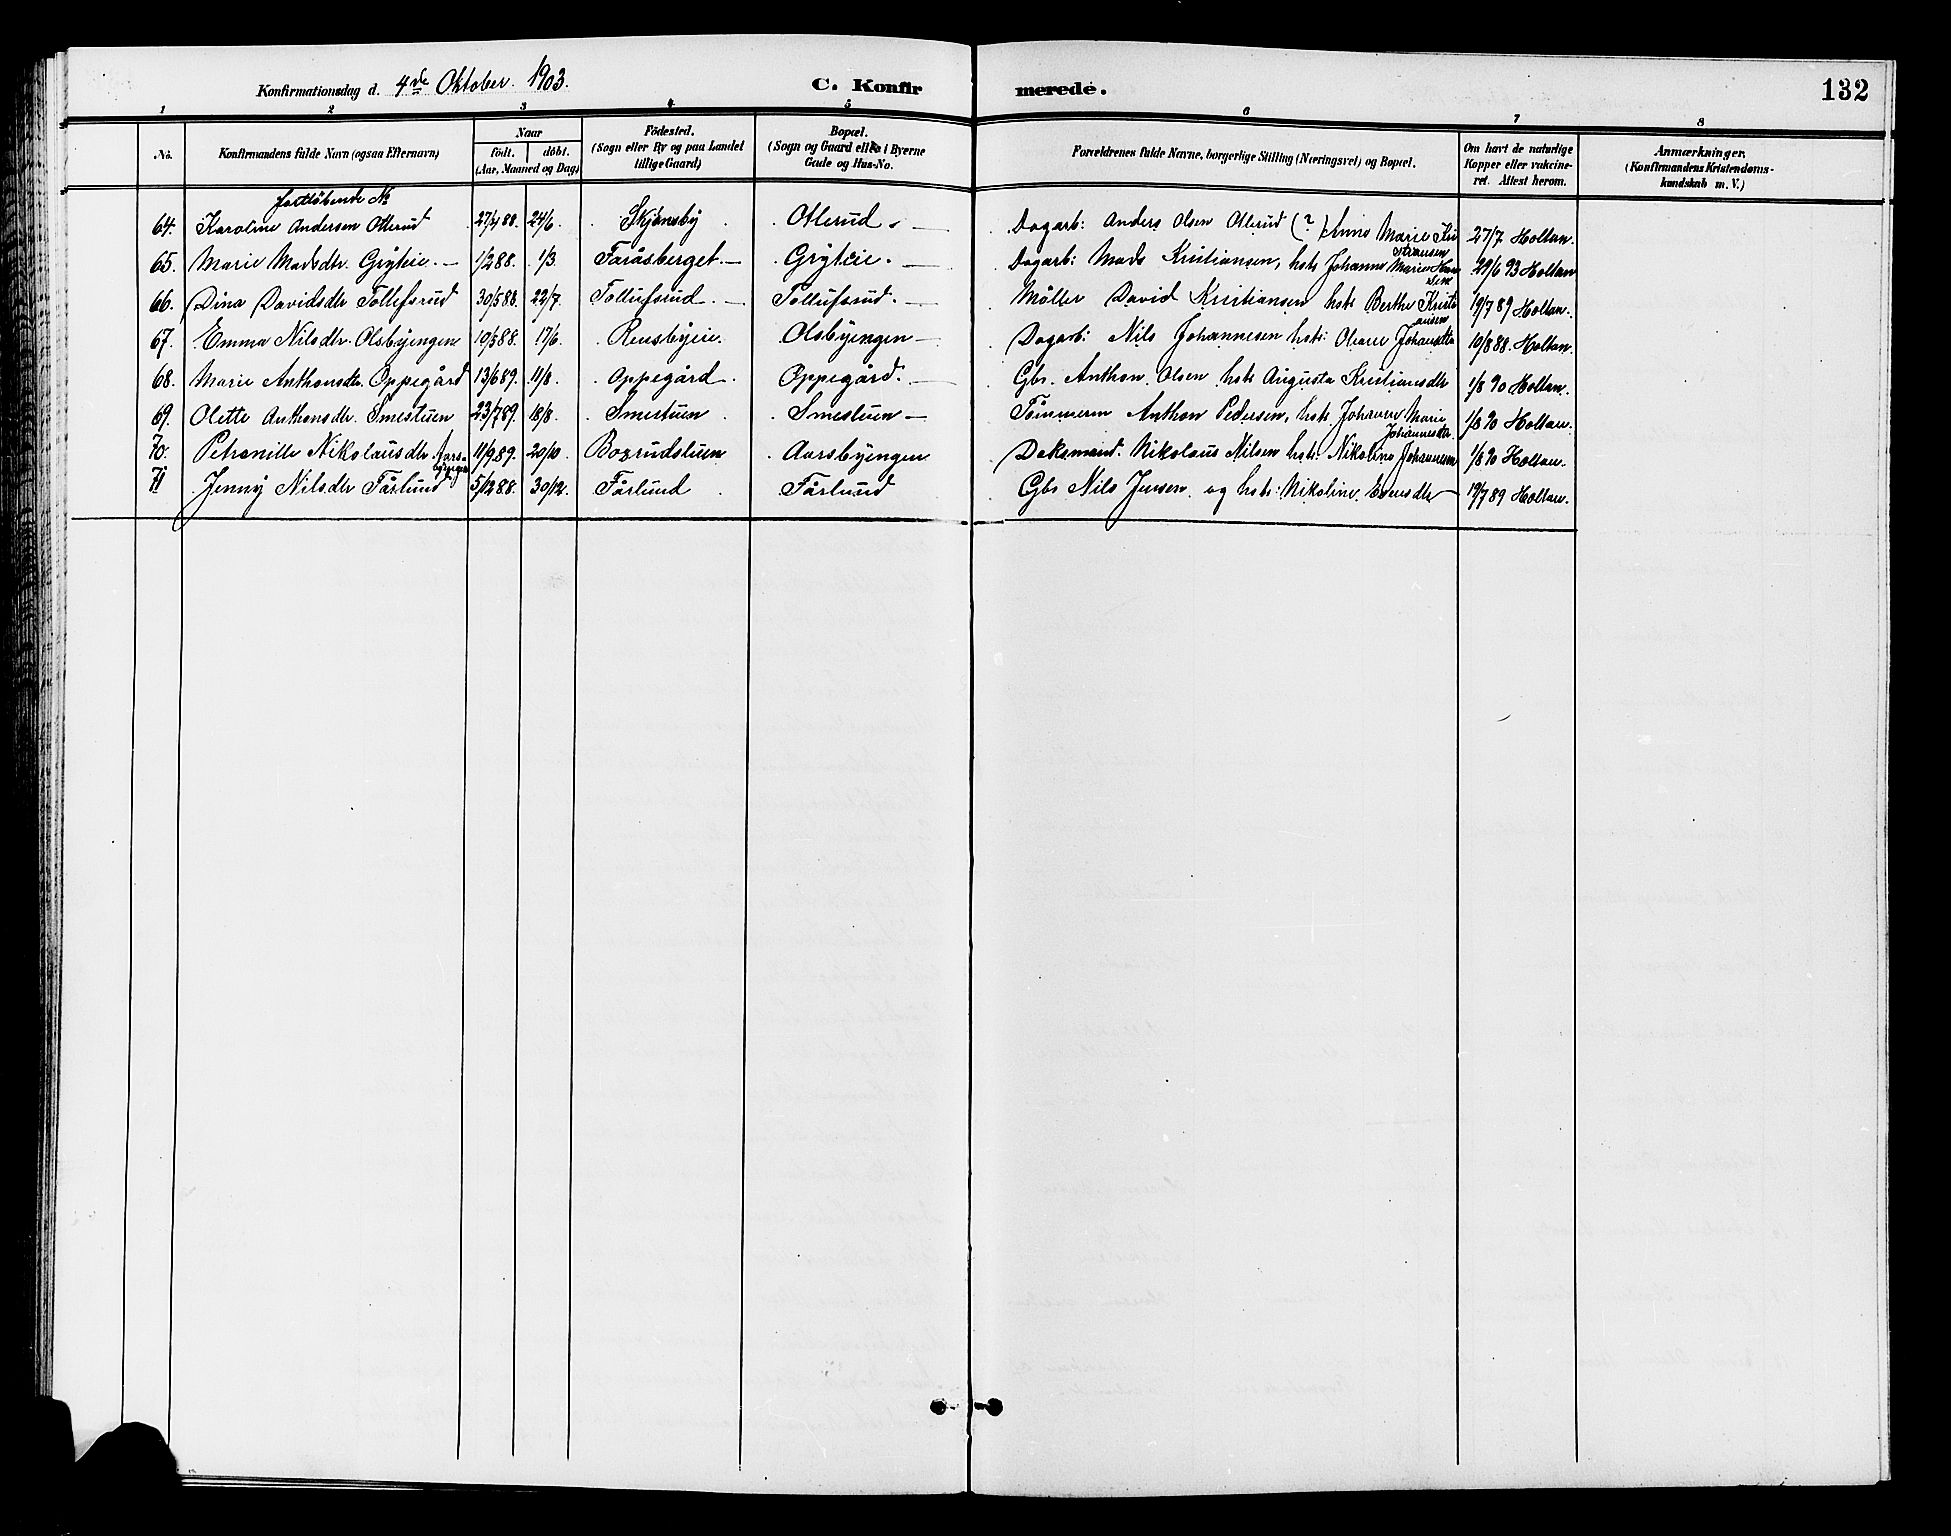 Konfirmationsdag d. 4de Oktober. 1903. C. Konfirmerede. 132
1 2 3 4 5 6 7 8
No. Konfirmandens fulde Navn (ogsaa Efternavn) Naar födt. döbt. (Aar, Maaned og Dag) Födested. (Sogn eller By og paa Landet tillige Gaard) Bopæl. (Sogn og Gaard eller i Byerne Gade og Hus-No. Forældrenes fulde Navne, borgerlige Stilling (Næringsvei) og Bopæl. Om havt de naturlige Kopper eller vaksineret. Attest herom. Anmærkninger. (Konfirmandens Kristendomskundskab m. V.)
fortløbende No
64. Karoline Andersen Otterud 27/4 88. 24/6. Skjønsby Otterud. Dagarb: Anders Olsen Otterud (?) Anne Marie Kristiansen 27/7 Holtan.
65. Marie Madsdtr. Grÿteie. 1/2 88. 1/3. Faråsberget. Grÿteie. Dagarb: Mads Kristiansen, hstr Johanne Marie Hansen 29/6 93 Holtan
66. Dina Davidsdtr Tollefsrud 30/5 88. 22/7. Tollufsrud. Tollufsrud. Möller David Kristiansen hstr Berthe Kristiansen 19/7 89 Holtan.
67. Emma Nilsdtr. Olsbÿengen 10/5 88. 17/6. Rensbÿeie. Olsbÿengen Dagarb: Nils Johannesen hstr: Oliane Johansdtr 10/8 88. Holtan.
68. Marie Anthonsdtr. Oppegård 13/6 89. 11/8. Oppegård. Oppegård. Gbr. Anthon Olsen hstr Augusta Kristiansdtr 1/8 90 Holtan.
69. Olette Anthonsdtr. Smestuen 23/7 89. 18/8. Smestuen. Smestuen Tömmerm Anthon Pedersen, hstr. Johanne Marie Johannesdtr. 1/8 90 Holtan.
70. Petronille Nikolausdtr. Aarsbyengen 11/9 89. 20/10 Boxrudstuen Aarsbyengen Daksmand. Nikolaus Nilsen hstr: Nikoline Johannesen 1/8 90 Holtan.
71 Jennÿ Nilsdtr Fårlund 5/12 88. 30/12. Fårlund Fårlund Gbr Nils Jensen og hstr: Nikoline Evensdtr 19/7 89 Holtan.